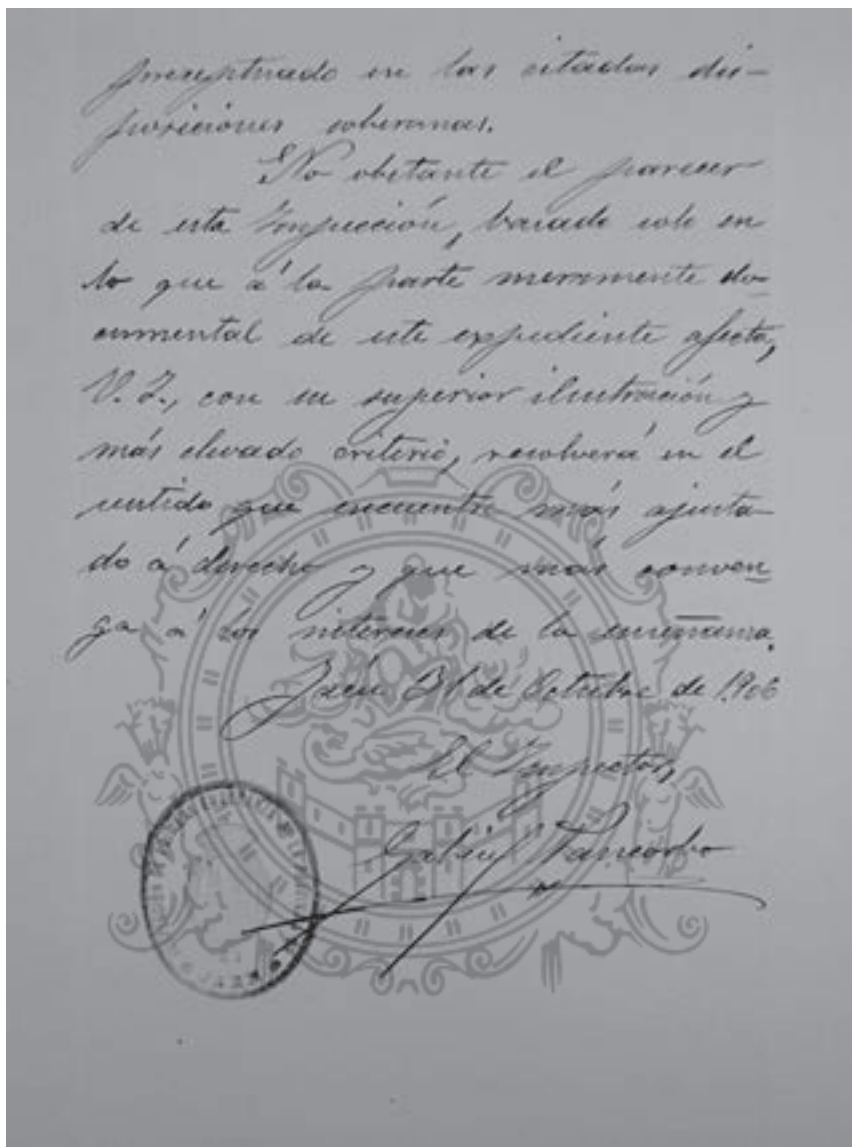 preceptuado en las citadas dis-
posiciones soberanas.
No obstante el parecer
de esta Inspección, basado solo en
lo que á la parte meramente do-
cumental de este expediente afecta,
V. I., con su superior ilustración y
más elevado criterio, resolverá en el
sentido que encuentre más ajusta-
do á derecho y que más conven-
ga á los intereses de la enseñanza.
Jaén 31 de Octubre de 1906
El Inspector,